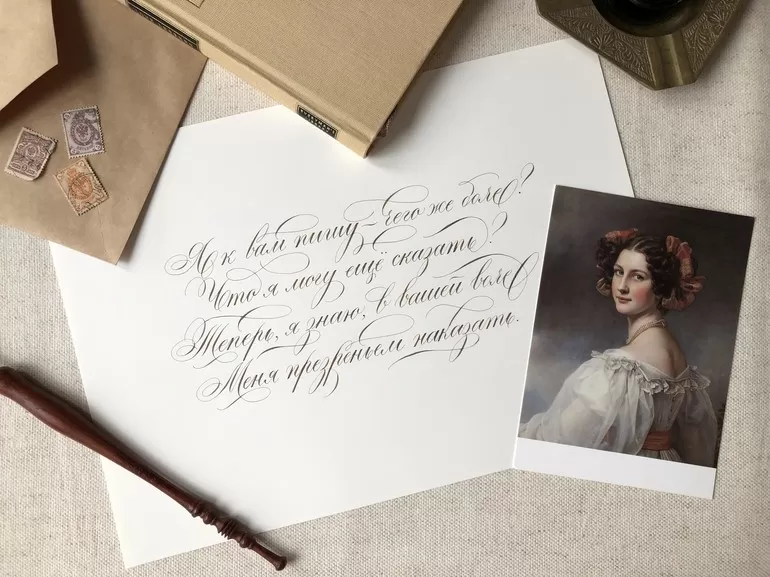 Я к вам пишу – чего же более?
Что я могу ещё сказать?
Теперь, я знаю, в вашей воле
Меня презреньем наказать.